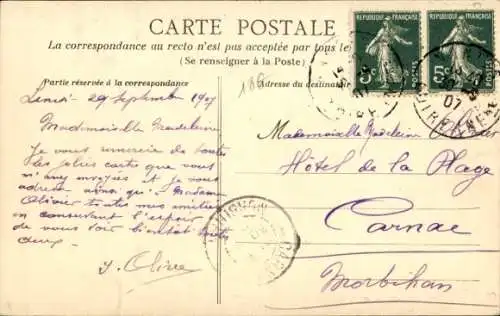 CARTE POSTALE
La correspondance au recto n'est pas acceptée par tous le
(Se renseigner à la Poste)
Partie réservée à la correspondance
Adresse du destinataire
REPUBLIQUE FRANÇAISE
REPUBLIQUE FRANÇAISE
POSTES
POSTES
5c
5c
07
Lundi 29 Septembre 1907
Mademoiselle Madeleine
Je vous remercie de toutes
les jolies carte que vous
m'avez envoyés et je vous
adresse ainsi qu'à Madame
Olivier toutes mes amitiés
en conservant l'espoir
de vous voir bientôt toutes
deux.
Y. Olivier
Mademoiselle Madeleine
Hôtel de la Plage
Carnac
Morbihan